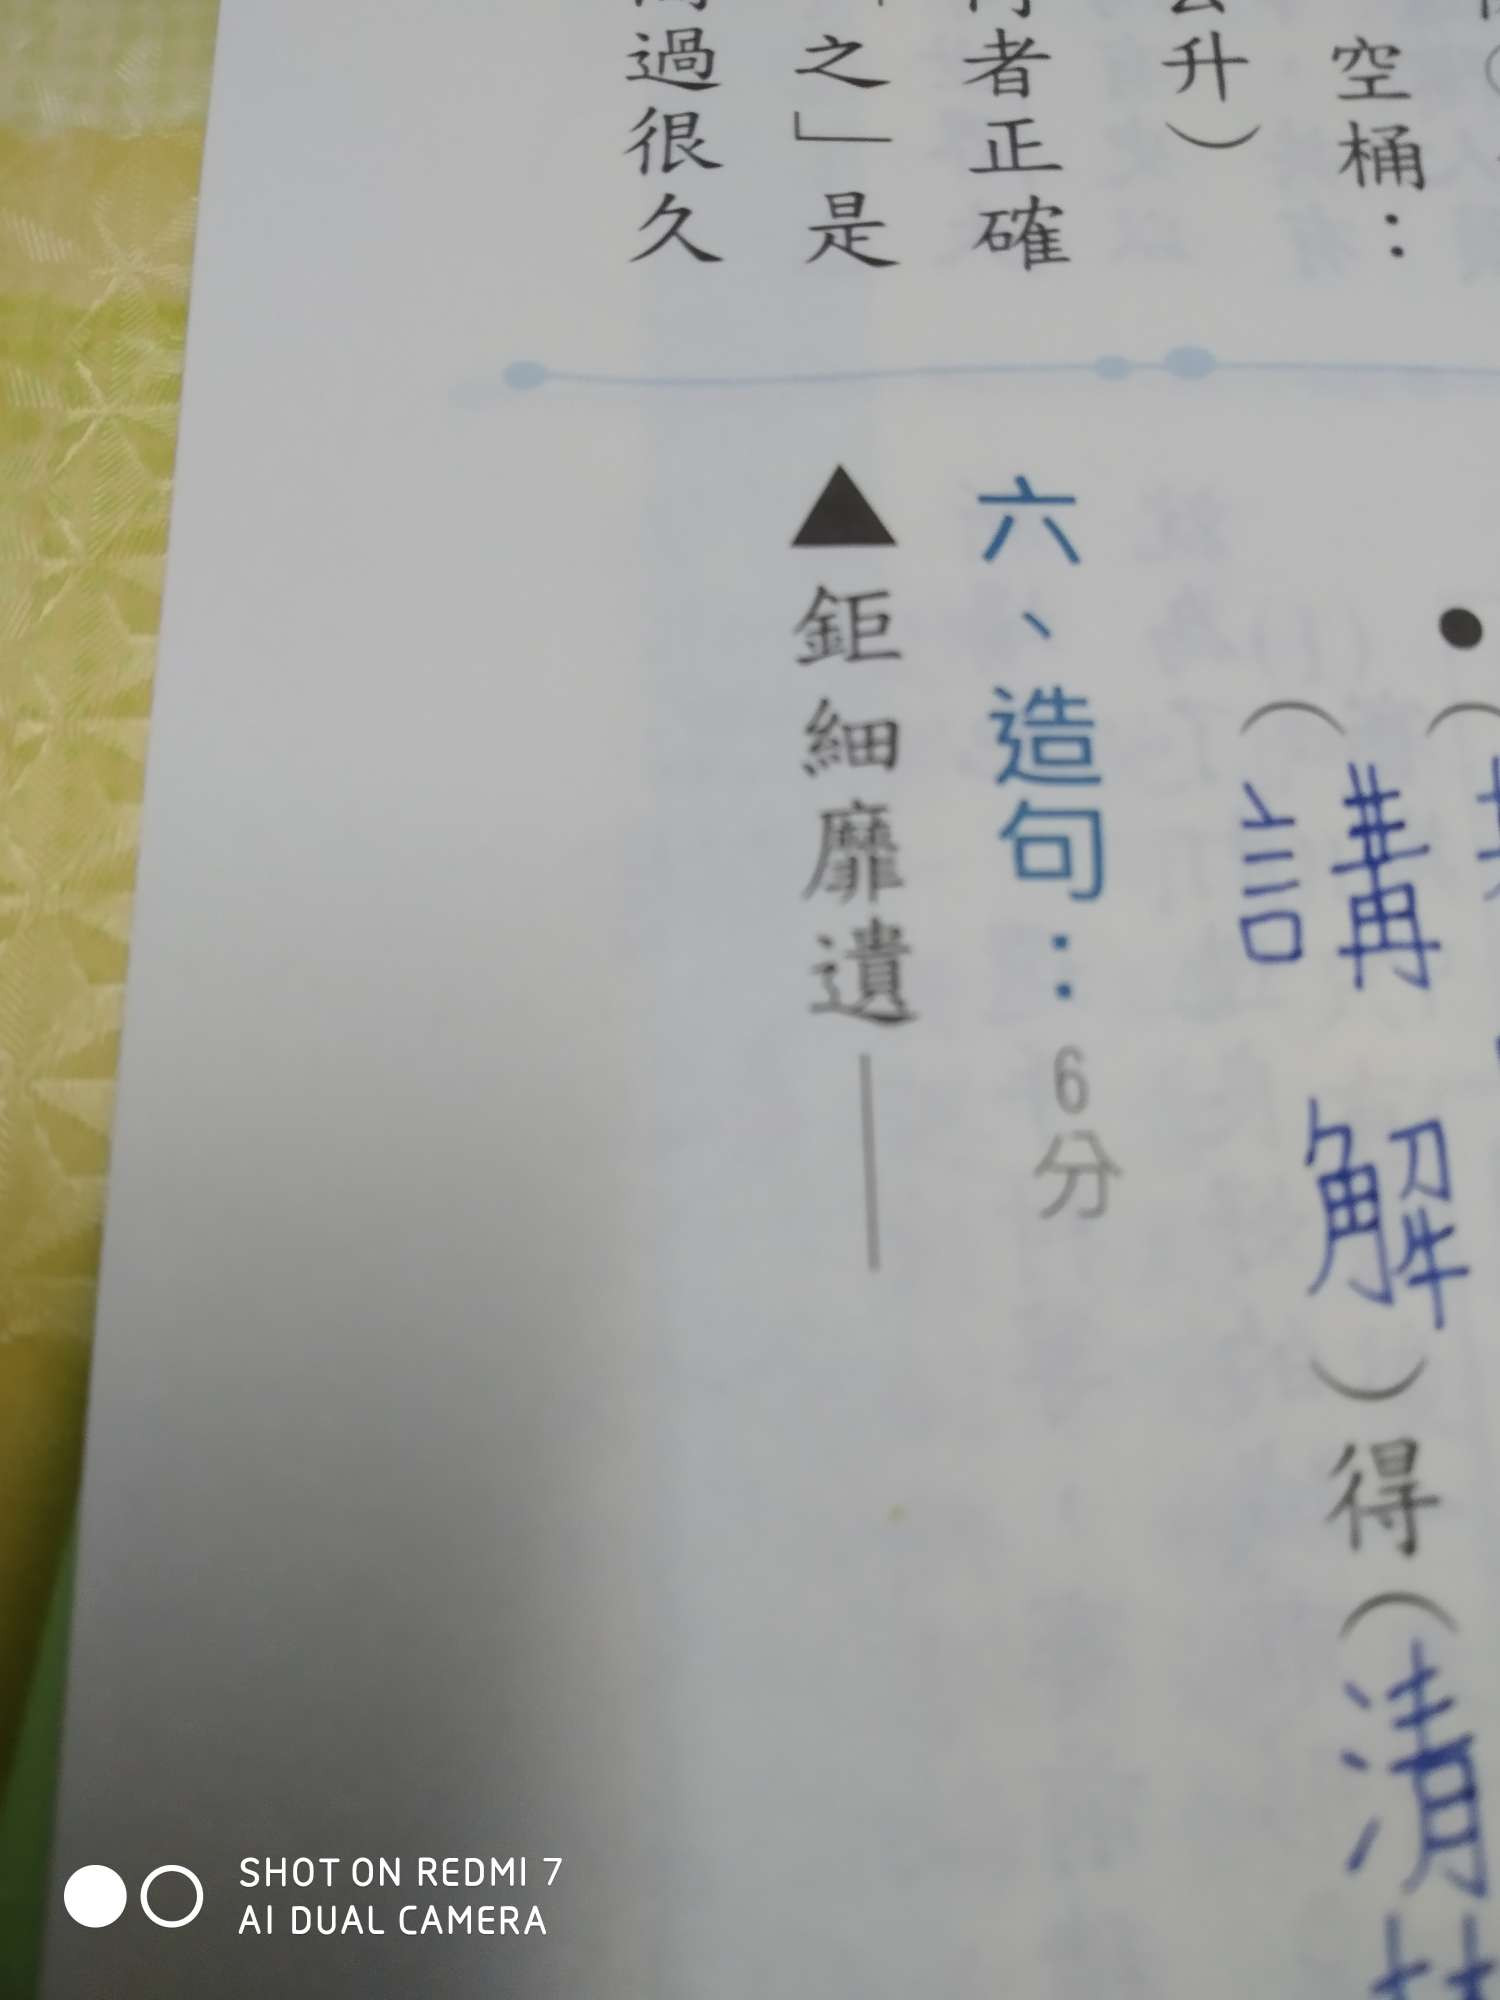 空桶：
升）
者正確
之」是
過很久
（講解）得（清
六、造句：6分
▲鉅細靡遺——
SHOT ON REDMI 7
AI DUAL CAMERA